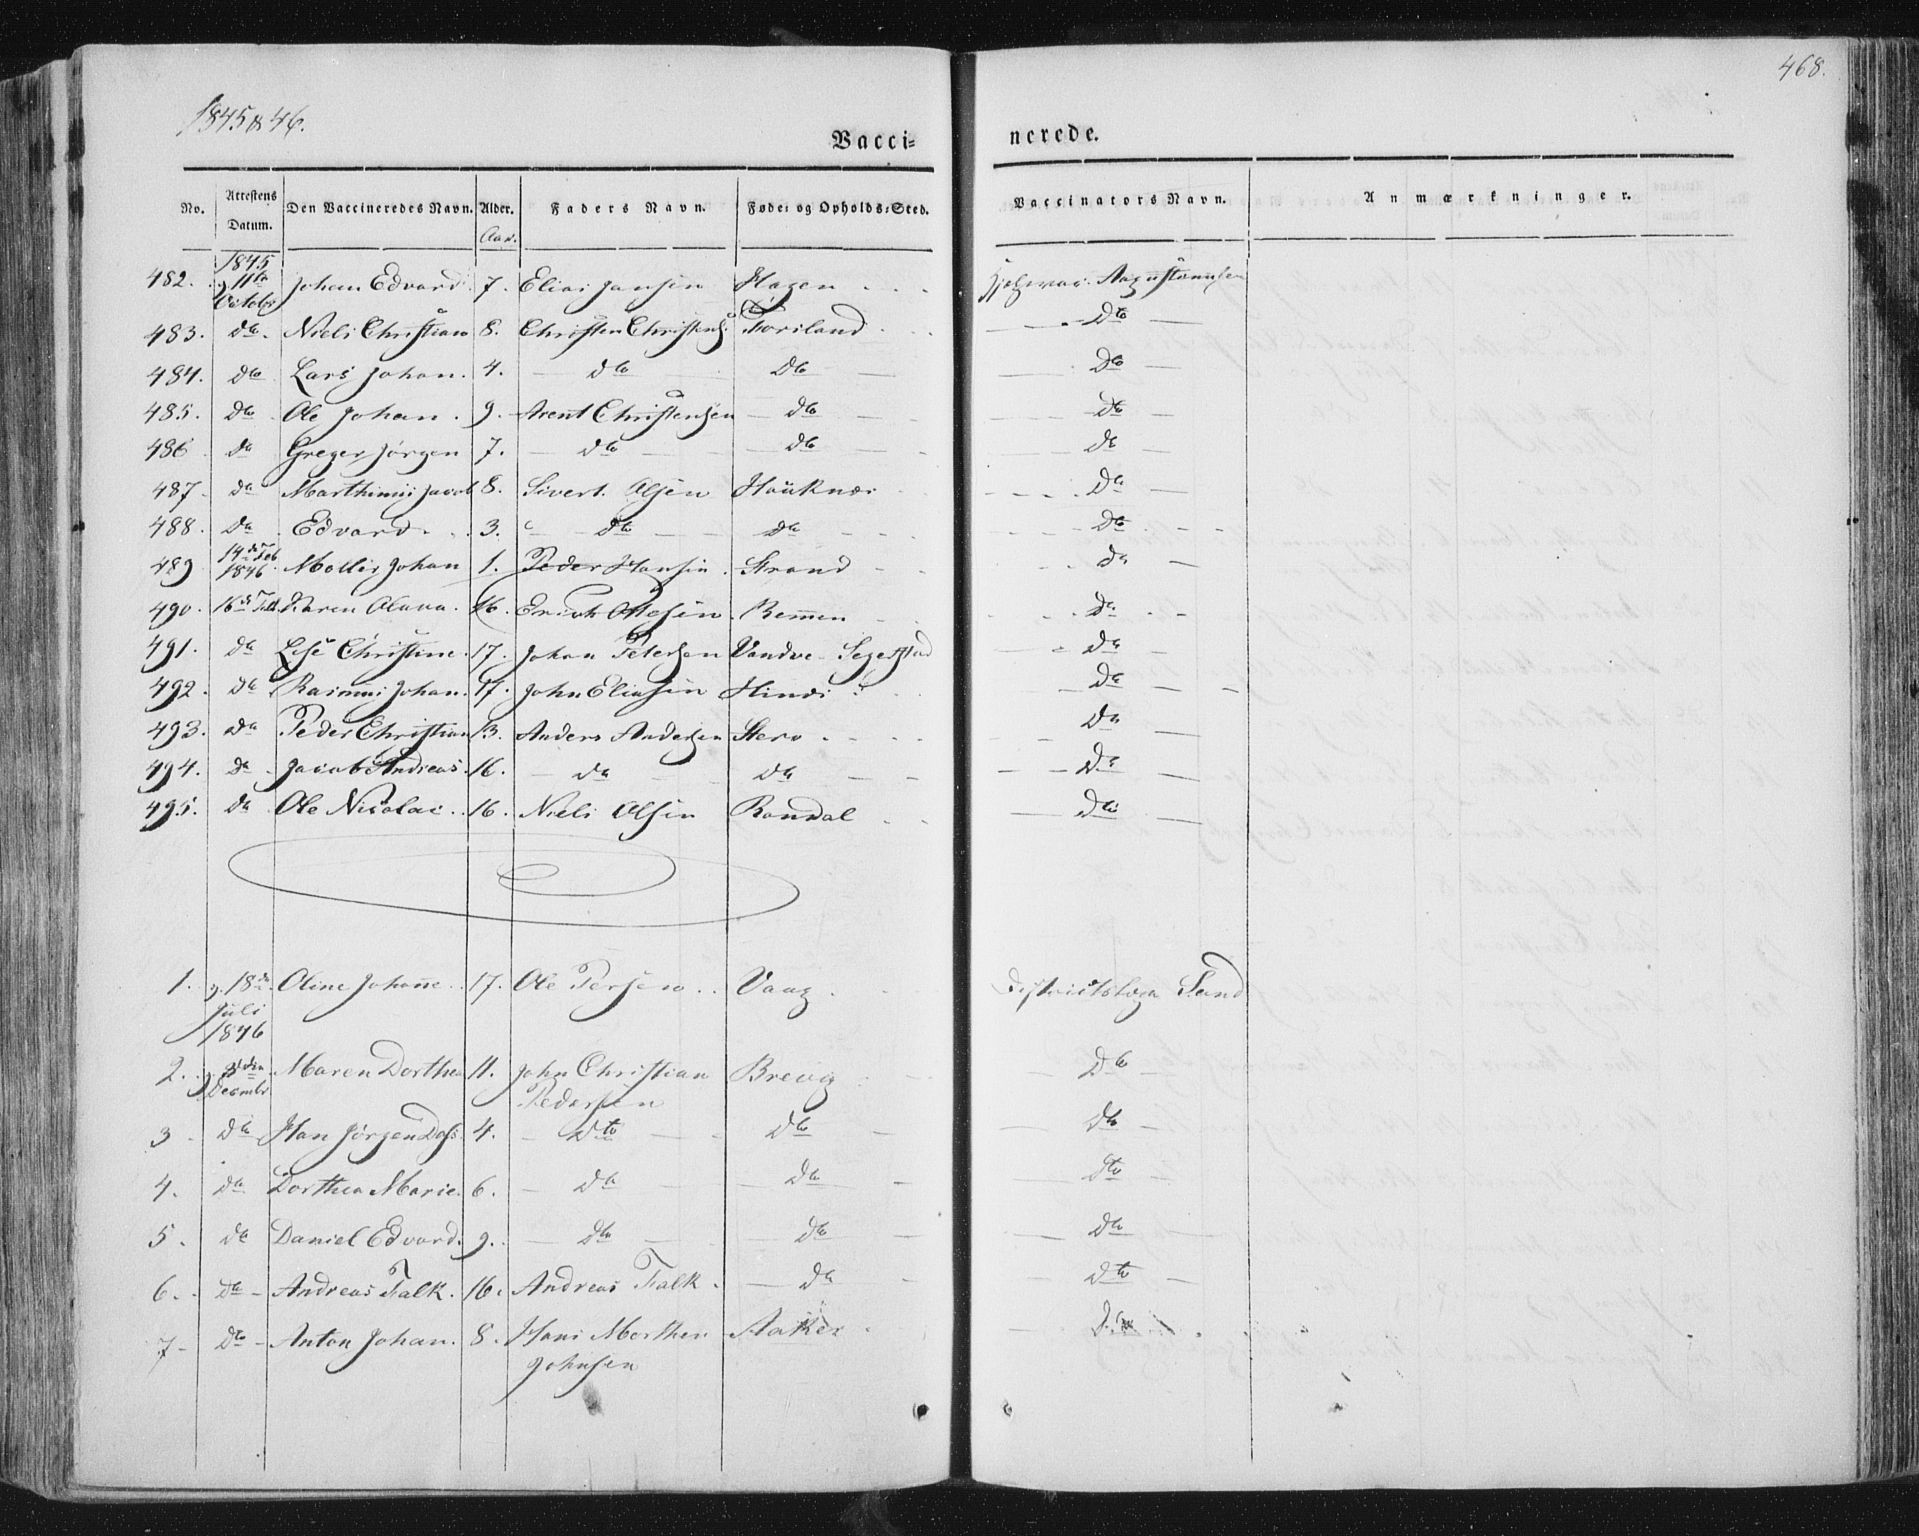 468.
1845 & 46.
Vacci- nerede.
No. Attestens Datum. Den Vaccineredes Navn. Alder. Faders Navn. Føde- og Opholds-Sted. Vaccinators Navn. Anmærkninger.
Aar.
482. 1845 11te Octobr Johan Edvard 7. Elias Jansen Hagen Augustinusen
483. do Niels Christian 8. Christen Christens. Toriland do
484. do Lars Johan. 4. do do do
485. do Ole Johan. 9. Arent Christensen do do
486 do Greger Jörgen 7. do do do
487 do Marthinus Jacob 8. Sivert Olsen Houknæs do
488. do Edvard 3. do do do
489 14de Feb 1846 Johan 1. Peder Hansen Strand do
490. 16de Feb Karen Olava. 16. Erich Olesen Remmen do
491. do Lise Christine. 17. Johan Petersen Vandve - Segelstad do
492. do Rasmus Johan. 17. John Eliasen Hinds do
493. do Peder Christian 13. Anders Andersen Stero do
494. do Jacob Andreas. 16. do do do
495. do Ole Nicolai 16. Niels Olsen Ramdal do
1. 18de Juli 1846 Oline Johanne 17. Ole Persen Vaag Districtslæge Sand
2. Decembr Maren Dorthea 11. John Christian Pedersen Brevig do
3 do Han Jørgen Dass. 4. dto do do
4. do Dorthea Marie. 6. do do dto
5. do Daniel Edvard. 9. do do do
6. do Andreas Falk. 16. Andreas Falk. do dto
7 dto Anton Johan. 8. Hans Morthen Johnsen Aaker do